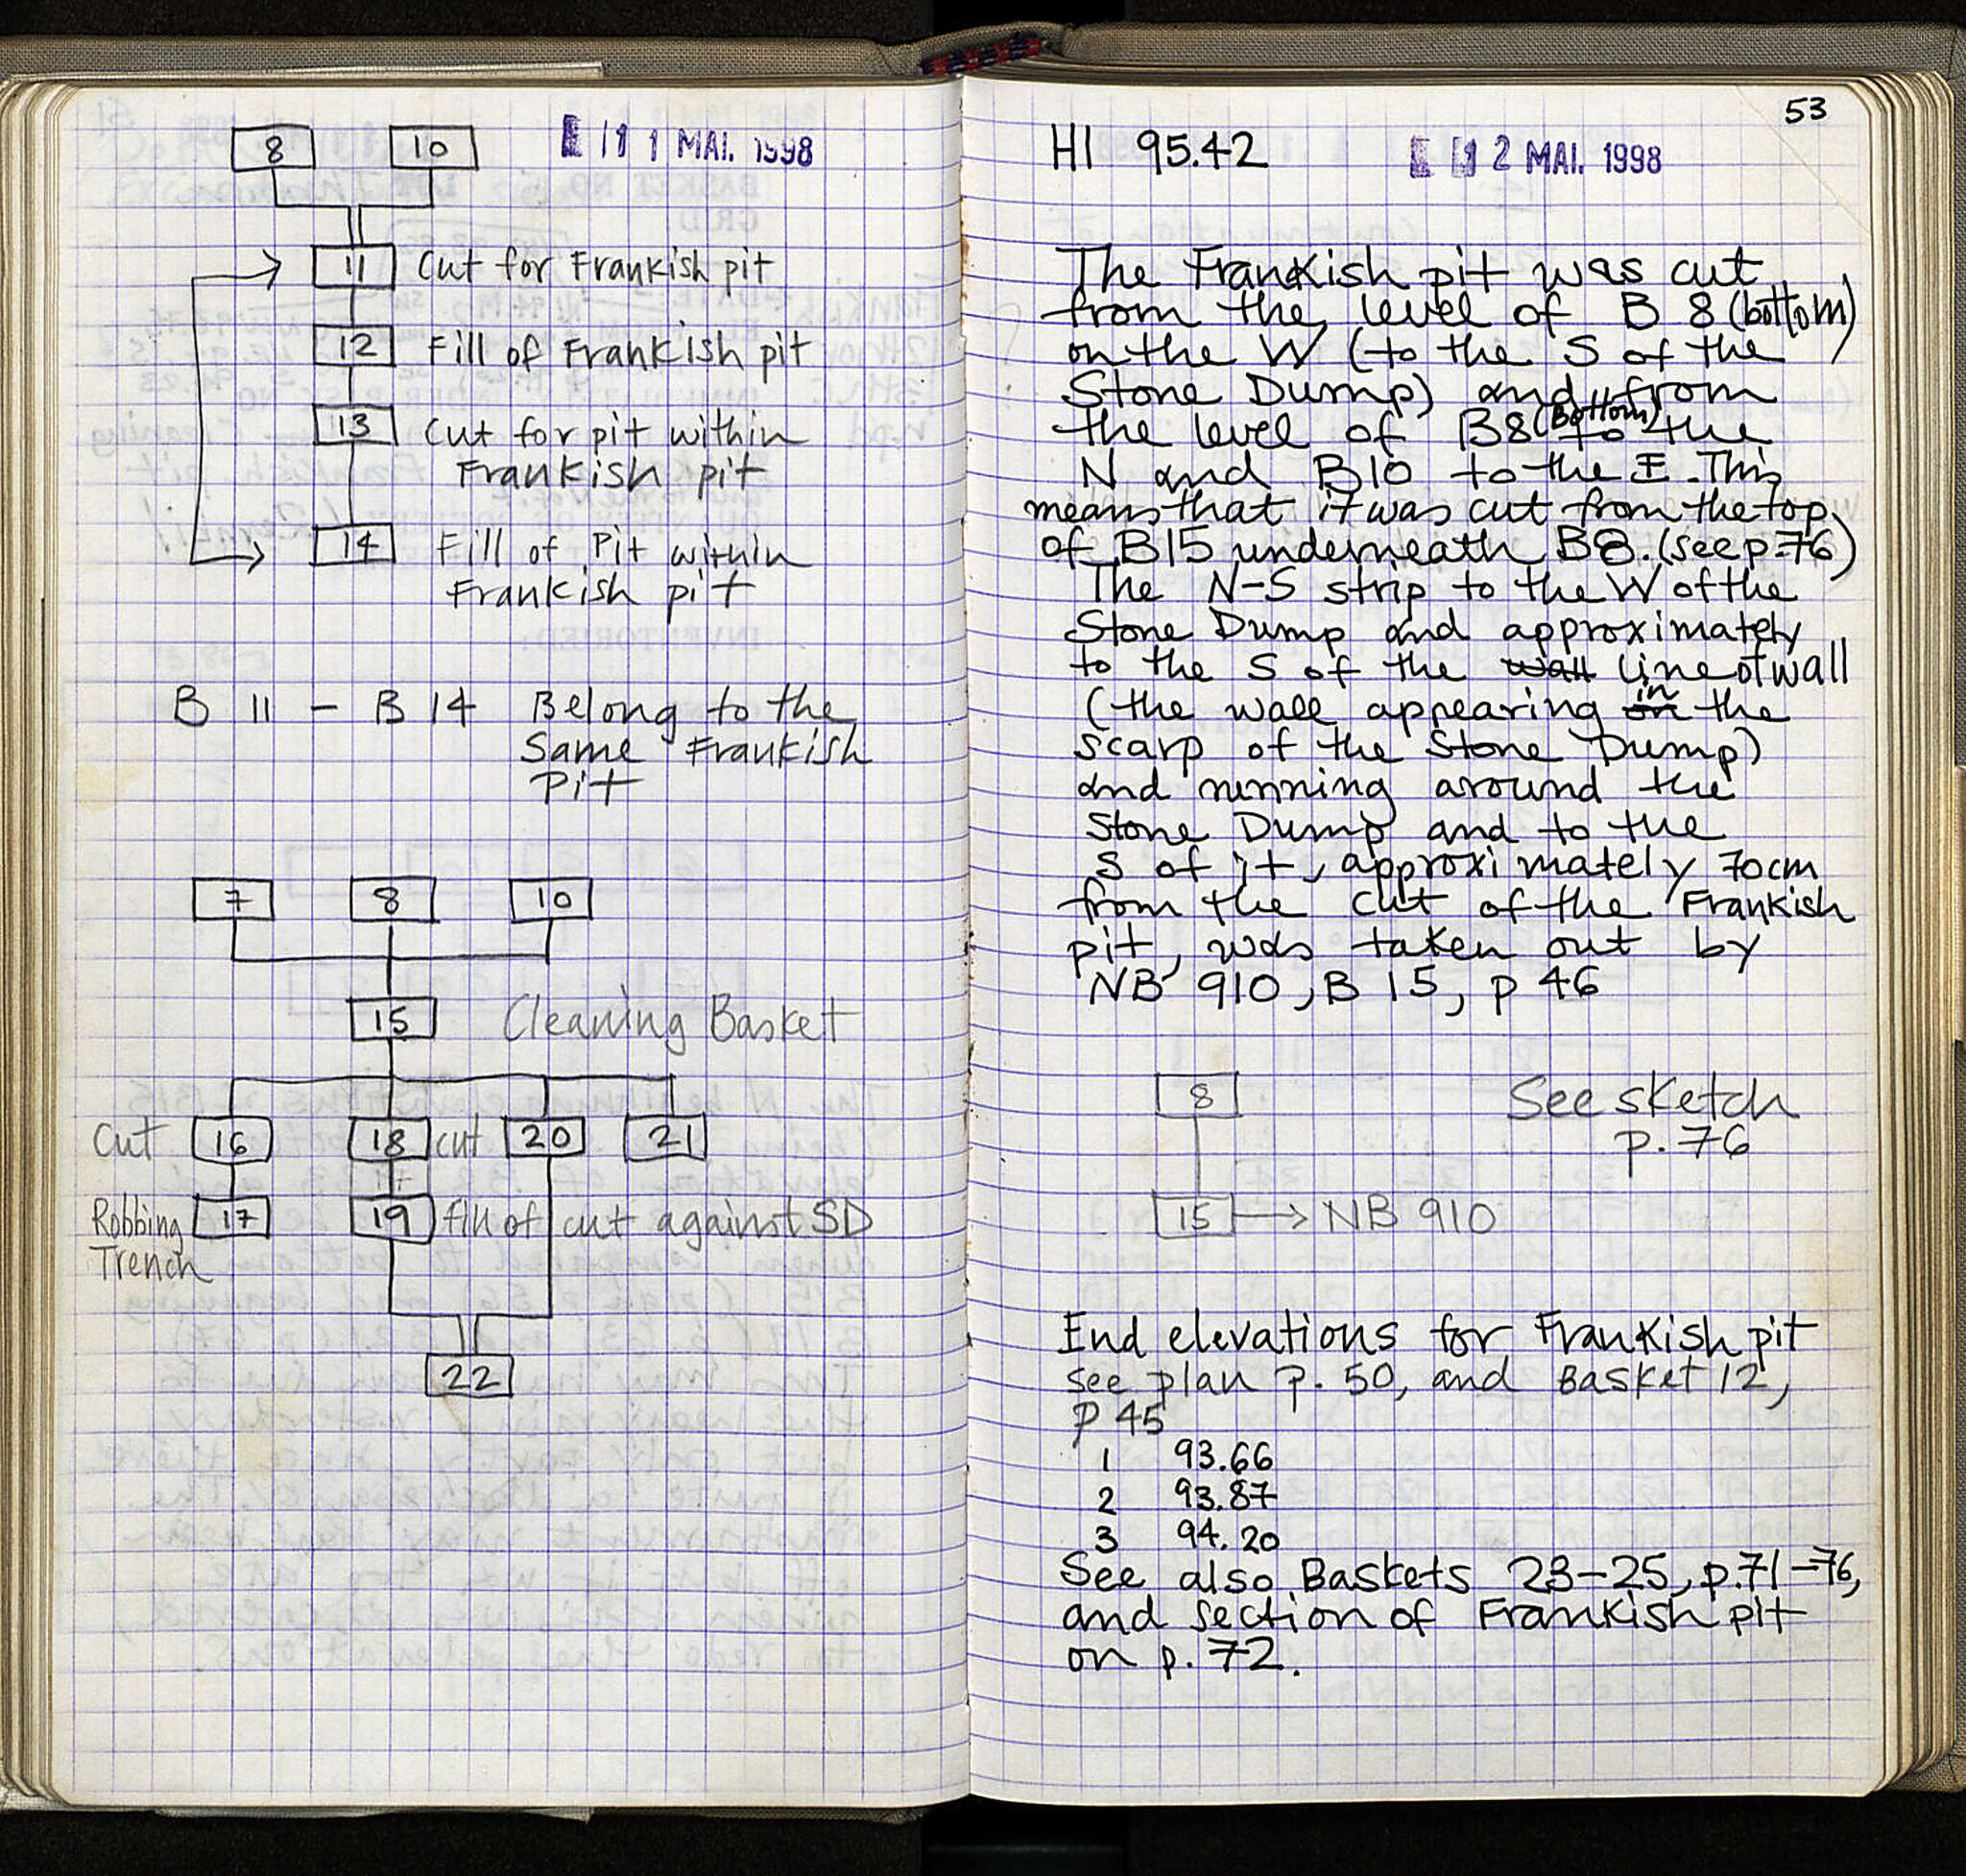 8 10 11 MAI. 1998
11 Cut for Frankish pit
12 Fill of Frankish pit
13 Cut for pit within
Frankish pit
14 Fill of Pit within
Frankish pit
B 11 - B 14 Belong to the
Same Frankish
Pit
7 8 10
15 Cleaning Basket
Cut 16 18 cut 20 21
Robbing 17 19 fill of cut against SD
Trench
22
53
HI 95.42 12 MAI. 1998
The Frankish pit was cut
from the level of B 8 (bottom)
on the W (to the S of the
Stone Dump) and from
the level of B8 (bottom) to the
N and B10 to the E. This
means that it was cut from the top
of B15 underneath B8. (see p. 76)
The N-S strip to the W of the
Stone Dump and approximately
to the S of the wall line of wall
(the wall appearing on in the
scarp of the Stone Dump)
and running around the
Stone Dump and to the
S of it, approximately 70cm
from the cut of the Frankish
pit, was taken out by
NB 910, B 15, p 46
8 See sketch
p. 76
15 → NB 910
End elevations for Frankish pit
see plan p. 50, and Basket 12,
p 45
1 93.66
2 93.87
3 94.20
See also Baskets 23-25, p.71-76,
and section of Frankish pit
on p. 72.